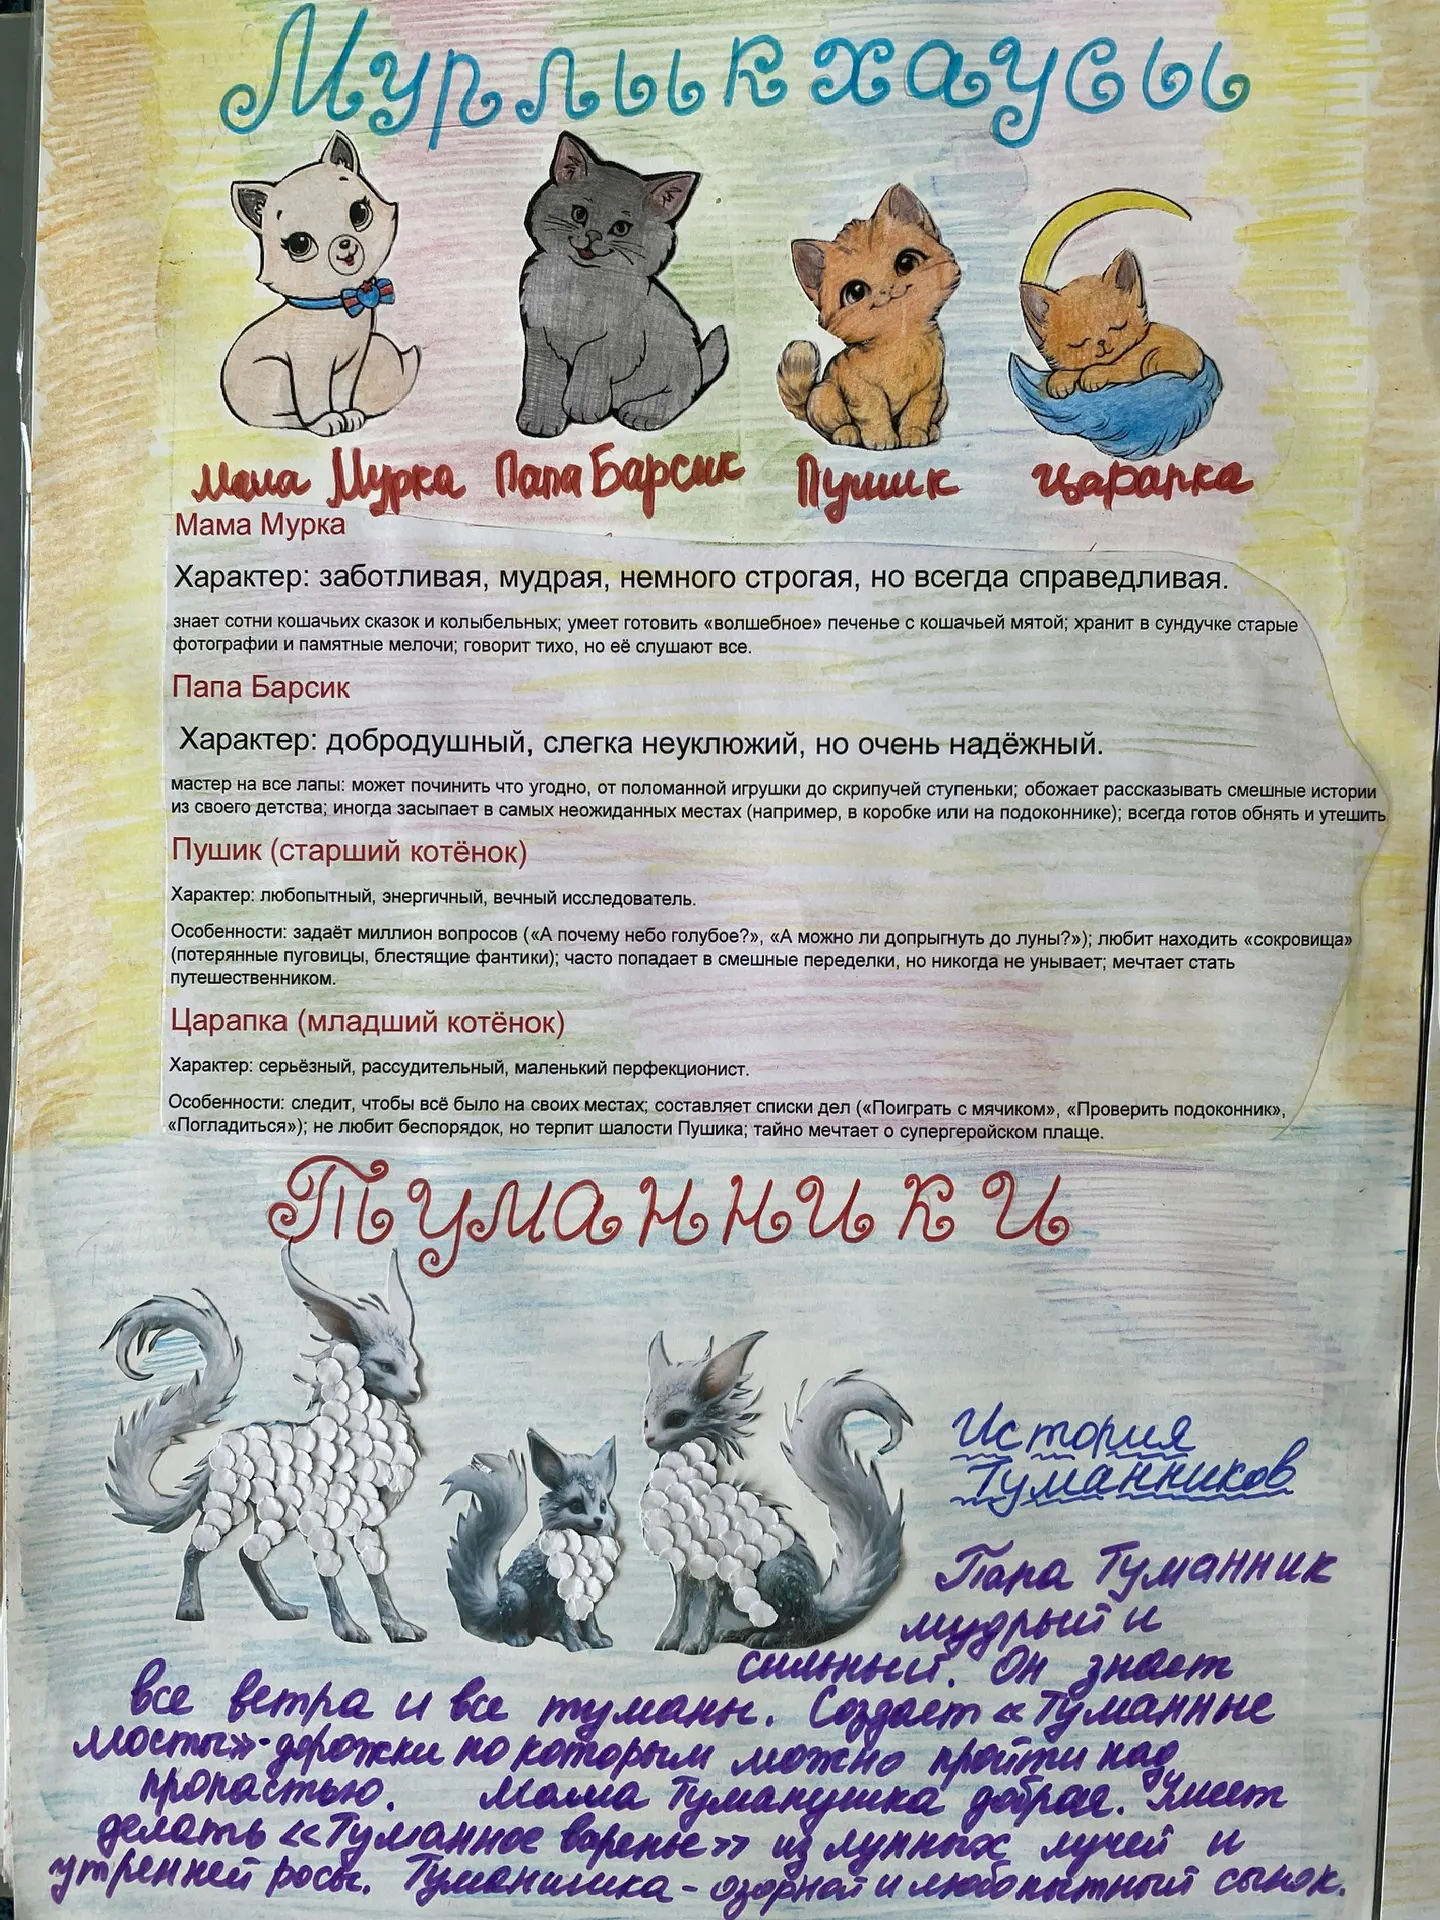 Мурлыкхаусы
Мама Мурка Папа Барсик Пушик Царапка
Мама Мурка
Характер: заботливая, мудрая, немного строгая, но всегда справедливая.
знает сотни кошачьих сказок и колыбельных; умеет готовить «волшебное» печенье с кошачьей мятой; хранит в сундучке старые
фотографии и памятные мелочи; говорит тихо, но её слушают все.
Папа Барсик
Характер: добродушный, слегка неуклюжий, но очень надёжный.
мастер на все лапы: может починить что угодно, от поломанной игрушки до скрипучей ступеньки; обожает рассказывать смешные истории
из своего детства; иногда засыпает в самых неожиданных местах (например, в коробке или на подоконнике); всегда готов обнять и утешить
Пушик (старший котёнок)
Характер: любопытный, энергичный, вечный исследователь.
Особенности: задаёт миллион вопросов («А почему небо голубое?», «А можно ли допрыгнуть до луны?»); любит находить «сокровища»
(потерянные пуговицы, блестящие фантики); часто попадает в смешные переделки, но никогда не унывает; мечтает стать
путешественником.
Царапка (младший котёнок)
Характер: серьёзный, рассудительный, маленький перфекционист.
Особенности: следит, чтобы всё было на своих местах; составляет списки дел («Поиграть с мячиком», «Проверить подоконник»,
«Погладиться»); не любит беспорядок, но терпит шалости Пушика; тайно мечтает о супергеройском плаще.
Туманники
История
Туманников
Папа Туманник
мудрый и
сильный. Он знает
все ветра и все туманы. Создает «Туманные
мосты»-дорожки по которым можно пройти над
пропастью. Мама Туманушка добрая. Умеет
делать «Туманное варенье» из лунных лучей и
утренней росы. Туманишка - озорной и любопытный сынок.